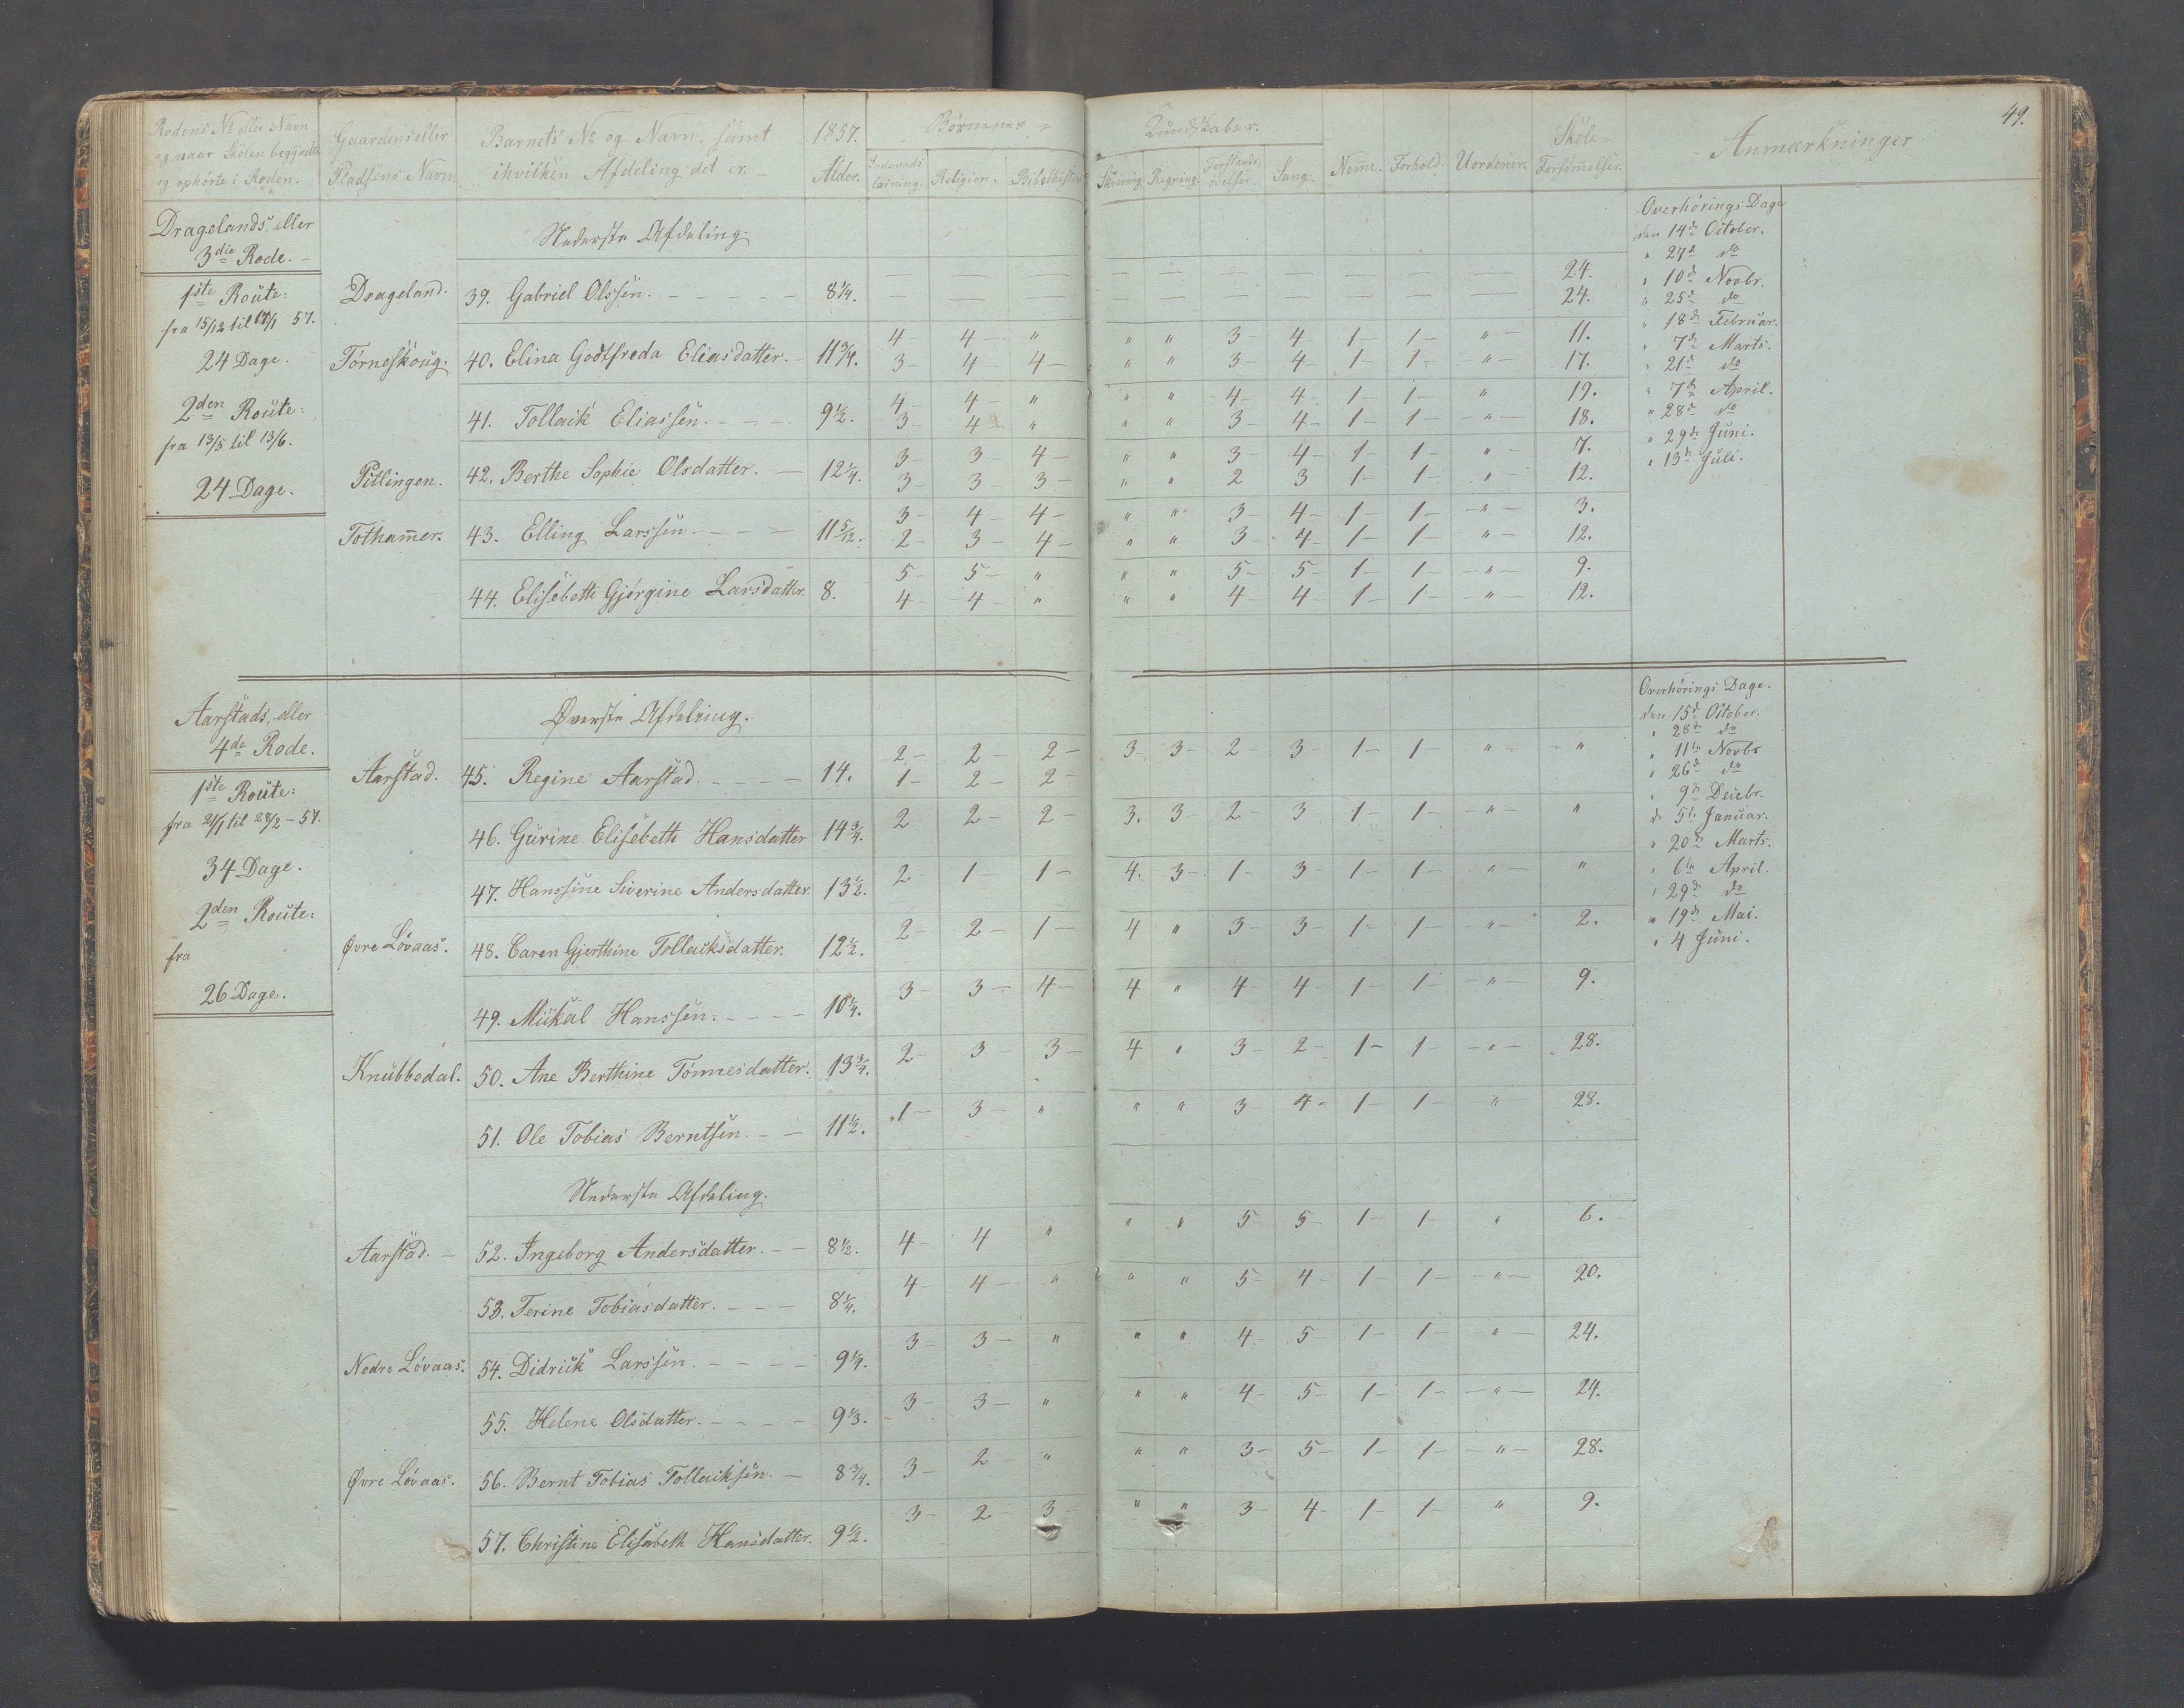 49.
Rodens No eller Navn og naar Skolen begyndte og ophørte i Roden. Gaardens eller Pladsens Navn. Barnets No og Navn, samt ihvilken Afdeling det er. 1857. Alder. Børnenes Kundskaber. Indenads læsning. Religion. Bibelhistorie Skrivning. Regning. Forstands øvelser. Sang. Nemme. Forhold. Uordener. Skole-Forsømmelser. Anmærkninger
Dragelands, eller
3die Rode.
Nederste Afdeling.
1ste Route:
fra 15/12 til 17/1 57.
24 Dage.
2den Route:
fra 13/5 til 13/6.
24 Dage.
Drageland. 39. Gabriel Olssen. 8 1/4. — — — — — — — — — — 24.
— — — — — — — — — — 24.
Torneskoug. 40. Elina Godtfreda Eliasdatter. 11 3/4. 4 4 " " " 3 4 1 1 " 11.
3 4 4 " " 3 4 1 1 " 17.
41. Tollack Eliassen. 9 1/2. 4 4 " " " 4 4 1 1 " 19.
3 4 " " " 3 4 1 1 " 18.
Pitlingen. 42. Berthe Sophie Olsdatter. 12 1/4. 3 3 4 " " 3 4 1 1 " 7.
3 3 3 " " 2 3 1 1 " 12.
Tothammer. 43. Elling Larssen. 11 5/12. 3 4 4 " " 3 4 1 1 " 3.
2 3 4 " " 3 4 1 1 " 12.
44. Elisebeth Gjørgine Larsdatter. 8. 5 5 " " " 5 5 1 1 " 9.
4 4 " " " 4 4 1 1 " 12.
Overhørings Dage
den 14de October.
" 27de do
" 10de Novbr.
" 25de do
" 18de Februar.
" 7de Marts.
" 21de do
" 7de April.
" 28de do
" 29de Juni.
" 13de Juli.
Aarstads, eller
4de Rode.
Øverste Afdeling.
1ste Route:
fra 21/1 til 28/2 - 57.
34 Dage.
2den Route:
fra
26 Dage.
Aarstad. 45. Regine Aarstad. 14. 2 2 2 3 3 2 3 1 1 " "
1 2 2
46. Gurine Elisebeth Hansdatter 14 3/4. 2 2 2 3. 3 2 3 1 1 " "
47. Hanssine Siverine Andersdatter. 13 1/2. 2 1 1 4. 3 1 3 1 1 " "
Øvre Løvaas. 48. Caren Gjerthine Tollacksdatter. 12 1/2. 2 2 1 4 " 3 3 1 1 " 2.
49. Mikal Hanssen. 10 1/4. 3 3 4 4 " 4 4 1 1 " 9.
Knubbedal. 50. Ane Berthine Tönnesdatter. 13 3/4. 2 3 3 4 " 3 2 1 1 " 28.
51. Ole Tobias Berntsen. 11 1/2. 1 3 " " " 3 4 1 1 " 28.
Nederste Afdeling.
Aarstad. 52. Ingeborg Andersdatter. 8 1/2. 4 4 " " " 5 5 1 1 " 6.
53. Terine Tobiasdatter. 8 1/4. 4 4 " " " 5 4 1 1 " 20.
Nedre Løvaas. 54. Didrick Larssen. 9 1/4. 3 3 " " " 4 5 1 1 " 24.
55. Helene Olsdatter. 9 1/3. 3 3 " " " 4 5 1 1 " 24.
Øvre Løvaas. 56. Bernt Tobias Tollacksen. 8 3/4. 3 2 " " " 3 5 1 1 " 28.
57. Christine Elisabeth Hansdatter. 9 1/2. 3 2 3 " " 3 4 1 1 " 9.
Overhørings Dage.
den 15de October.
" 28de do
" 11te Novbr
" 26de do
" 9de Decbr.
d 5te Januar.
" 20de Marts.
" 6te April.
" 29de do
" 19de Mai.
" 4 Juni.